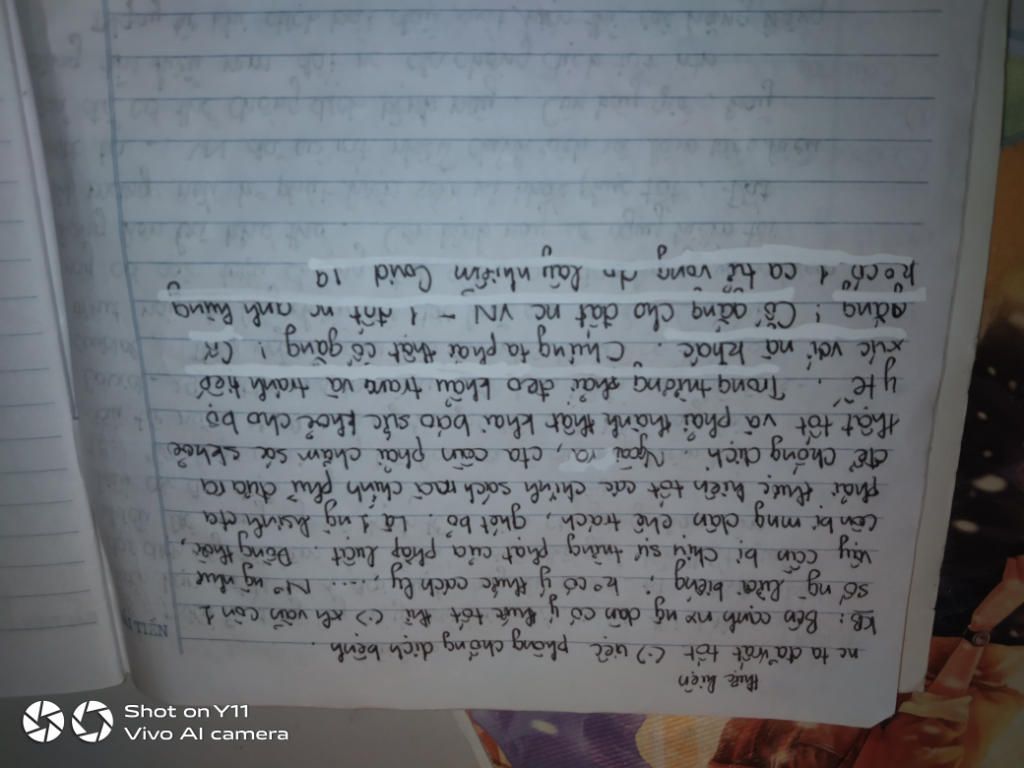 thực hiện
nc ta đã rất tốt (-) việc phòng chống dịch bệnh.
KB: Bên cạnh n~ ng dân có ý thức tốt thì (-) xh vẫn còn 1
số ng lười biếng; ko có ý thức cách ly,.... N~ ng như
vậy cần bị chịu sự trừng phạt của pháp luật. Đồng thời,
còn bị mng dân chê trách, ghét bỏ. Là 1 ng hsinh cta
phải thực hiện tốt các chính sách mà chính phủ đưa ra
để chống dịch. Ngoài ra, cta cần phải chăm sóc skhỏe
thật tốt và phải thành thật khai báo sức khoẻ cho bộ
y tế. Trong trường phải đeo khẩu trang và tránh tiếp
xúc với ng khác. Chúng ta phải thật cố gắng! Cố
gắng! Cố gắng cho đất nc VN - 1 đất nc anh hùng
ko có 1 ca tử vong do lây nhiễm Covid 19
Shot on Y11
Vivo AI camera